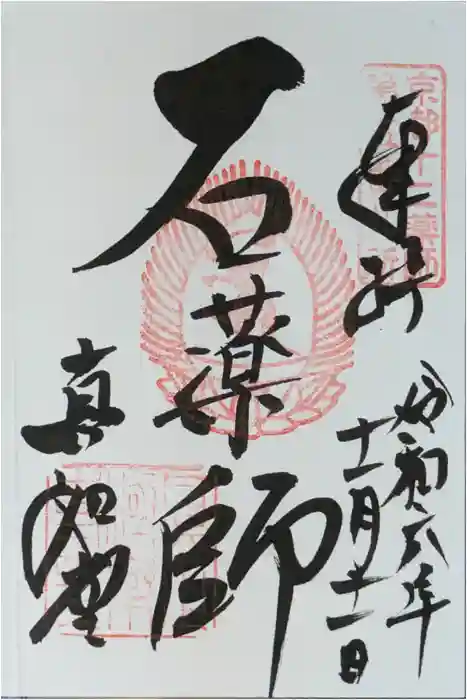 京都十二薬師
奉拝
令和六年
十一月十一日
石薬師
真如堂